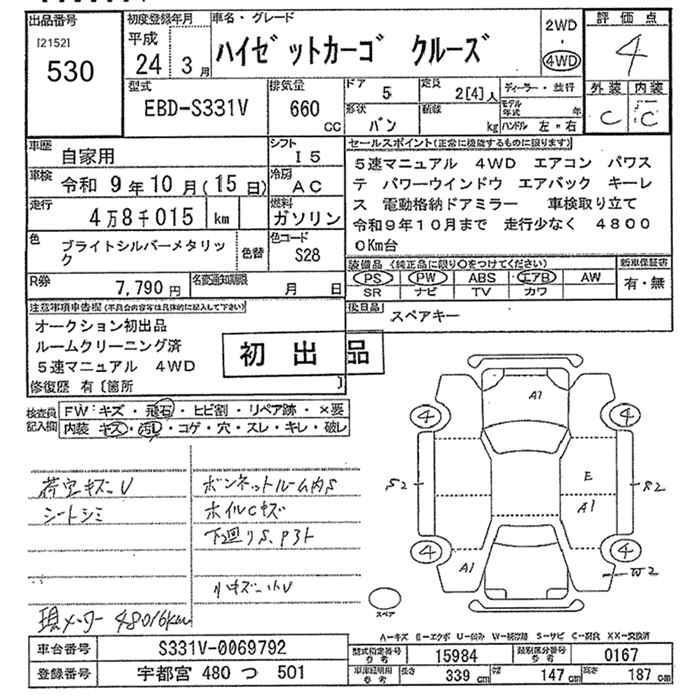 出品番号
[2152]
530
初度登録年月
平成
24 3月
車名・グレード
ハイゼットカーゴ クルーズ
2WD
・
4WD
評価点
4
外装 内装
C C
型式
EBD-S331V
排気量
660
CC
ドア
5
定員
2[4]人
形状
バン
積載
kg
ディーラー・並行
モデル年式 年
ハンドル 左・右
車歴
自家用
シフト
I5
車検
令和 9年10月(15日)
冷房
AC
走行
4万8千015 km
燃料
ガソリン
色
ブライトシルバーメタリック
色替
色コード
S28
R券
7,790円
名変通知期限
月 日
セールスポイント(正常に機能するものに限ります)
5速マニュアル 4WD エアコン パワス
テ パワーウインドウ エアバック キーレ
ス 電動格納ドアミラー 車検取り立て
令和9年10月まで 走行少なく 4800
0Km台
装備品 (純正品に限り○をつけてください)
PS PW ABS エアB AW
SR ナビ TV カワ
新車保証書
有・無
後日品
スペアキー
注意事項申告欄(不具合の内容等は具体的に記入して下さい)
オークション初出品
ルームクリーニング済
5速マニュアル 4WD
修復歴 有〔箇所 〕
初出品
検査員
記入欄
FW:キズ・飛石・ヒビ割・リペア跡・×要
内装 キズ・汚レ・コゲ・穴・スレ・キレ・破レ
荷室キズ二U
シートシミ
ボンネットルーム内S
ホイルCキズ
下廻りS、Pヨト
小キズ一ハU
現メーター48016km
A1
4 4
S2 E S2
A1
4 4
A1 W2
スペア
A-キズ E-エクボ U-凹み W-補修跡 S-サビ C-腐食 XX-交換済
車台番号
S331V-0069792
登録番号
宇都宮 480 つ 501
型式指定番号
参考
15984
類別区分番号
参考
0167
車庫証明用
参考
長さ 339cm 幅 147cm 高さ 187cm